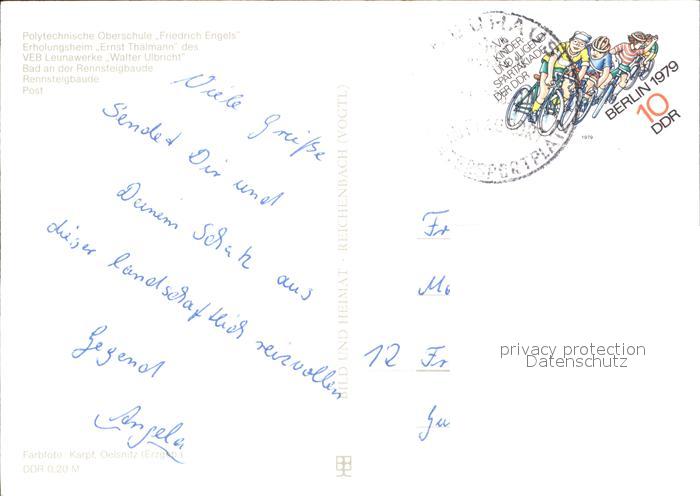 Polytechnische Oberschule „Friedrich Engels"
Erholungsheim „Ernst Thälmann" des
VEB Leunawerke „Walter Ulbricht"
Bad an der Rennsteigbaude
Rennsteigbaude
Post
Viele Grüße
Sendet Dir und
Deinem Schatz aus
dieser landschaftlich reizvollen
Gegend
Angela
Farbfoto: Karpf, Oelsnitz (Erzgeb.)
DDR 0,20 M
BILD UND HEIMAT · REICHENBACH (VOGTL)
NEUHAUS
WINTERSPORTPLATZ
VII.
KINDER-
UND JUGEND-
SPARTAKIADE
DER DDR
BERLIN 1979
10
DDR
1979
Fr
12 Fr
privacy protection
Datenschutz